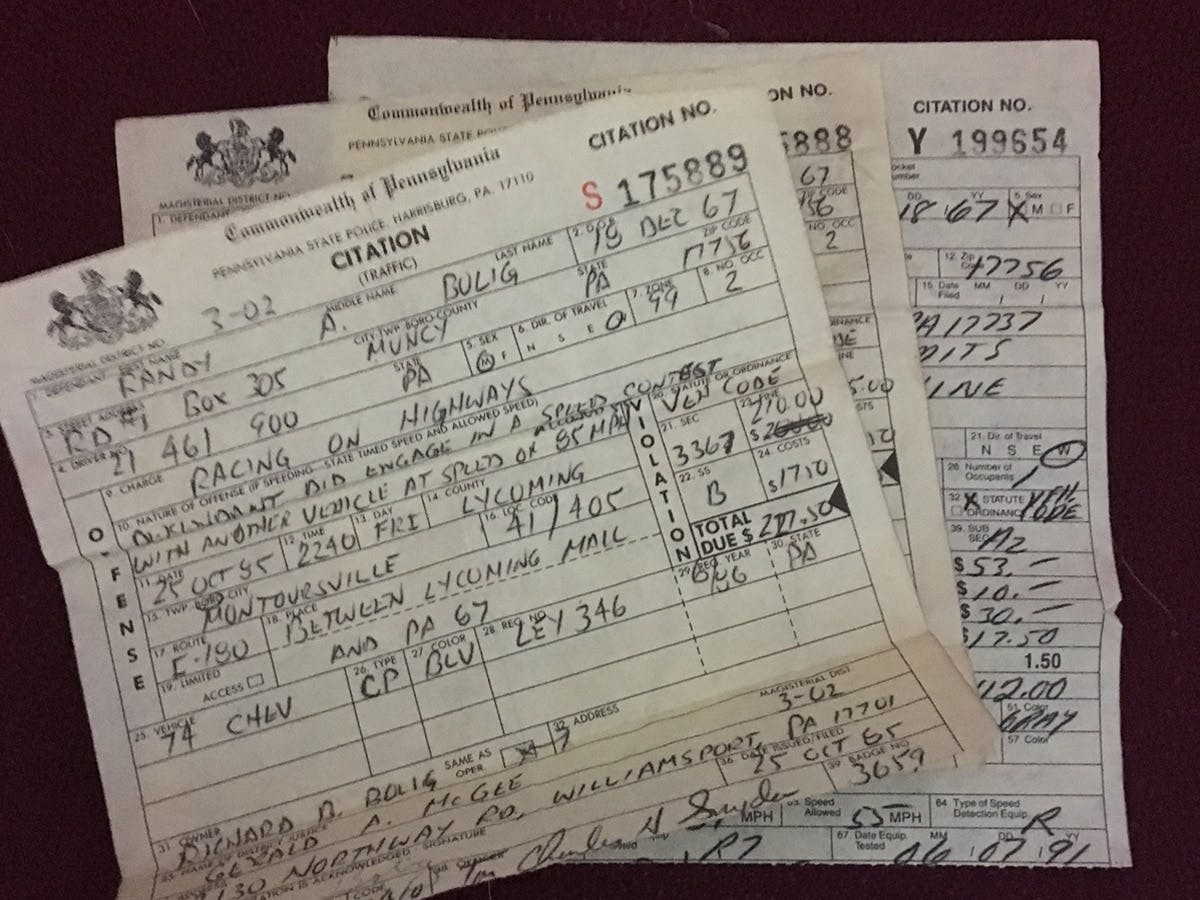 Commonwealth of Pennsylvania
PENNSYLVANIA STATE POLICE, HARRISBURG, PA. 17110
CITATION
(TRAFFIC)
CITATION NO.
S 175889
MAGISTERIAL DISTRICT NO. 3-02
1. DEFENDANT FIRST NAME MIDDLE NAME LAST NAME 2. D.O.B.
RANDY A. BULIG 18 DEC 67
3. STREET ADDRESS CITY-TWP-BORO-COUNTY STATE ZIP CODE
RD #1 BOX 305 MUNCY PA 17756
4. DRIVER NO. STATE 5. SEX 6. DIR. OF TRAVEL 7. ZONE 8. NO. OCC
21 461 900 PA M F N S E 99 2
9. CHARGE RACING ON HIGHWAYS
10. NATURE OF OFFENSE (IF SPEEDING - STATE TIMED SPEED AND ALLOWED SPEED)
DEFENDANT DID ENGAGE IN A SPEED CONTEST
WITH ANOTHER VEHICLE AT SPEED OF 85 MPH
11. DATE 12. TIME 13. DAY 14. COUNTY
25 OCT 85 2240 FRI LYCOMING
15. TWP BORO CITY 16. LOC. CODE
MONTOURSVILLE 41/405
17. ROUTE 18. PLACE
I-180 BETWEEN LYCOMING MALL
AND PA 67
19. LIMITED ACCESS
OFFENSE
VIOLATION
20. STATUTE OR ORDINANCE
VEH CODE
21. SEC 3367
22. SS B
23. FINE
24. COSTS $17.10
TOTAL DUE $
25. VEHICLE 26. TYPE 27. COLOR 28. REG. NO. 29. REG. YEAR 30. STATE
74 CHEV CP BLU LEY 346 PA
31. OWNER SAME AS OPER. 32. ADDRESS
RICHARD B. BULIG
GERALD A. MCGEE MAGISTERIAL DIST 3-02
1130 NORTHWAY RD, WILLIAMSPORT, PA 17701
36. DATE ISSUED/FILED 25 OCT 85
39. BADGE NO. 3659
Commonwealth of Pennsylvania
PENNSYLVANIA STATE
MAGISTERIAL DISTRICT NO.
1. DEFENDANT
ON NO.
5888
67
ZIP CODE
NO. OCC
2
CITATION NO.
Y 199654
DD YY 5. Sex
18 67 X M F
12. Zip 17756
15. Date Filed MM DD YY
PA 17737
MITS
LINE
21. Dir. of Travel
N S E W
28. Number of Occupants 1
32. X STATUTE ORDINANCE VEH CODE
39. SUB SEC. A2
$ 53.—
$ 10.—
$ 30.—
$ 17.50
1.50
112.00
51. Color
GRAY
57. Color
MPH
63. Speed Allowed 55 MPH
64. Type of Speed Detection Equip. R
67. Date Equip. Tested MM DD YY
06 07 91